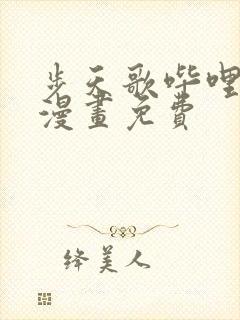 步天歌哔哩
漫畫免費
绛美人